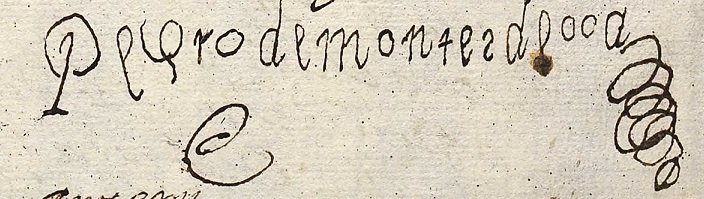 Pedro demontesdeoca